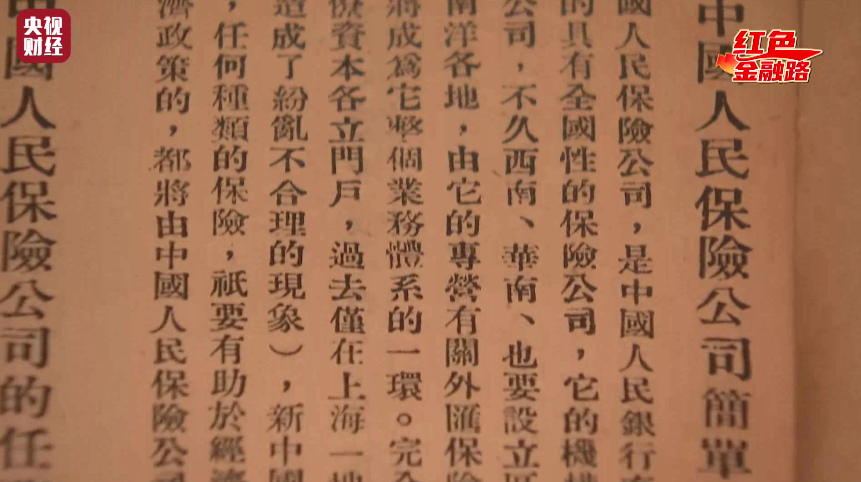 央视
财经
红色
金融路
中國人民保險公司簡單
國人民保險公司，是中國人民銀行
的具有全國性的保險公司，它的機構
公司，不久西南、華南、也要設立
南洋各地，由它的專營有關外匯保險
將成爲它整個業務體系的一環。完全
資本各立門戶，過去僅在上海一地
造成了紛亂不合理的現象），新中國
，任何種類的保險，祇要有助於經濟
濟政策的，都將由中國人民保險公司
中國人民保險公司的任